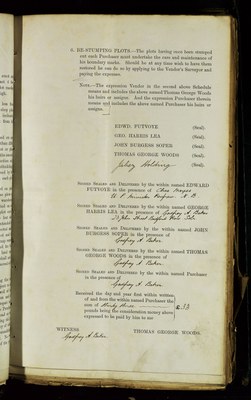 6. RE-STUMPING PLOTS.—The plots having once been stumped
out each Purchaser must undertake the care and maintenance of
his boundary marks. Should he at any time wish to have them
restored he can do so by applying to the Vendor's Surveyor and
paying the expenses.
NOTE.—The expression Vendor in the second above Schedule
means and includes the above named Thomas George Woods
his heirs or assigns. And the expression Purchaser therein
means and includes the above named Purchaser his heirs or
assigns.
EDWD. PUTVOTE (Seal).
GEO. HARRIS LEA (Seal).
JOHN BURGESS SOPER (Seal).
THOMAS GEORGE WOODS (Seal).
(Seal).
SIGNED SEALED AND DELIVERED by the within named EDWARD
PUTVOTE in the presence of
SIGNED SEALED AND DELIVERED by the within named GEORGE
HARRIS LEA in the presence of Godfrey A. Baker
SIGNED SEALED AND DELIVERED by the within named JOHN
BURGESS SOPER in the presence of
Godfrey A. Baker
SIGNED SEALED AND DELIVERED by the within named THOMAS
GEORGE WOODS in the presence of
Godfrey A. Baker.
SIGNED SEALED AND DELIVERED by the within named Purchaser
in the presence of
Godfrey A. Baker
Received the day and year first within written
of and from the within named Purchaser the
sum of
pounds being the consideration money above
expressed to be paid by him to me
WITNESS THOMAS GEORGE WOODS.
Godfrey A. Baker